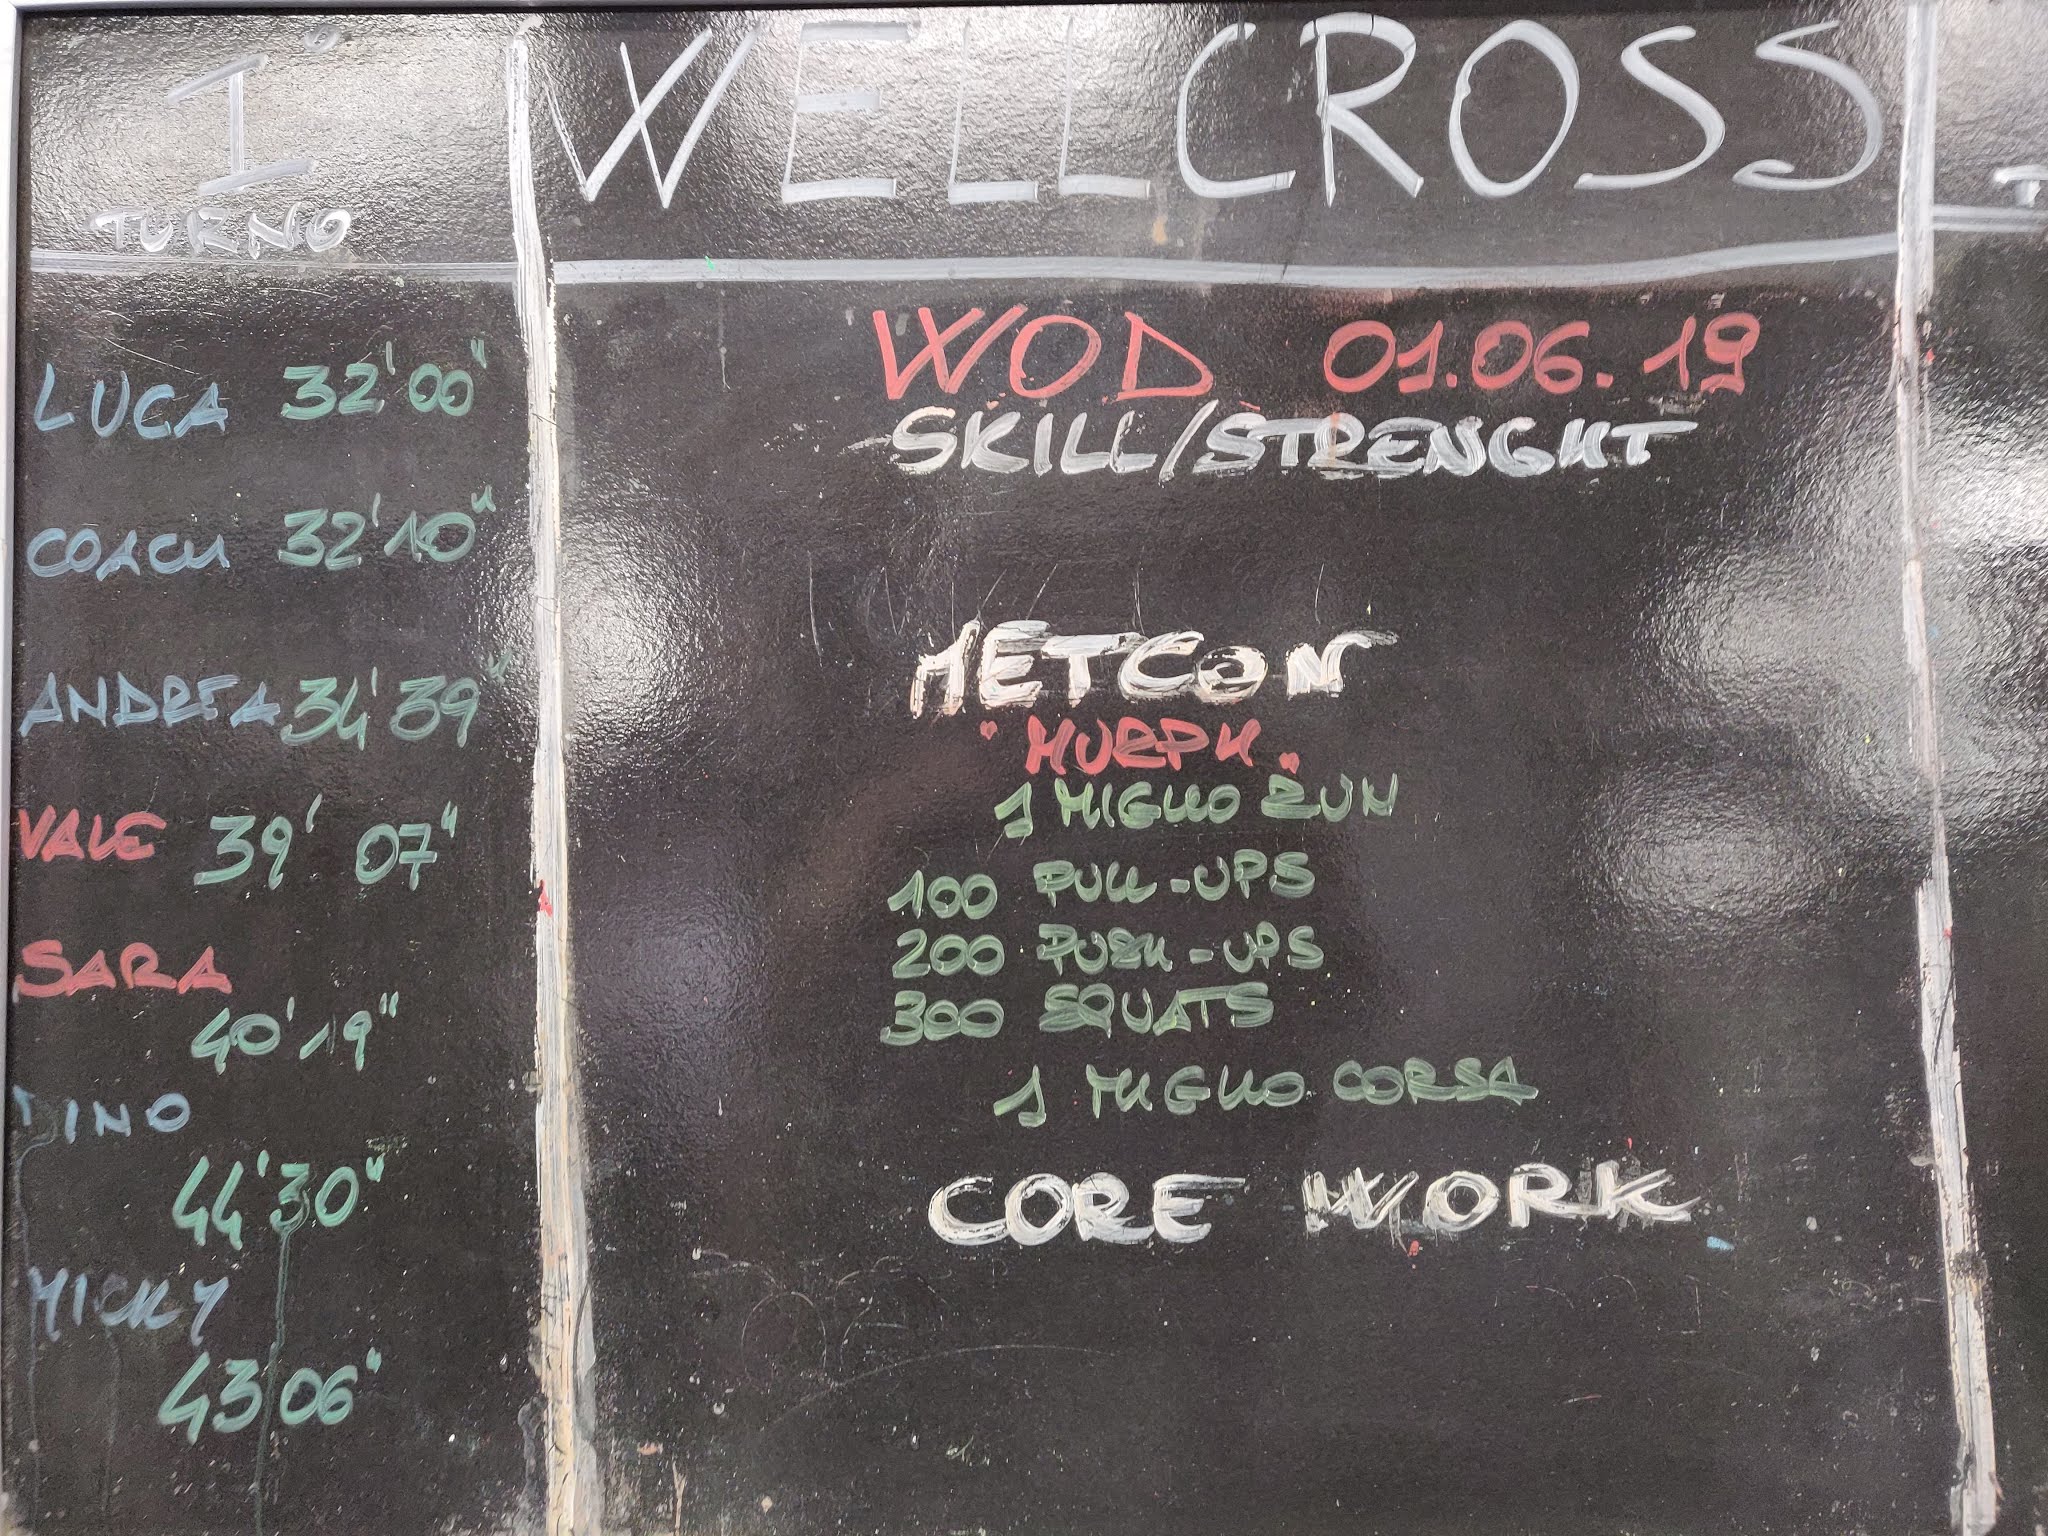 I°
TURNO
LUCA 32'00"
COACH 32'10"
ANDREA 34'39"
VALE 39' 07"
SARA
40'19"
DINO
44'30"
MICKY
43'06"
WELLCROSS
WOD 01.06.19
SKILL/STRENGHT
METCON
"MURPH"
1 MIGLIO RUN
100 PULL-UPS
200 PUSH-UPS
300 SQUATS
1 MIGLIO CORSA
CORE WORK